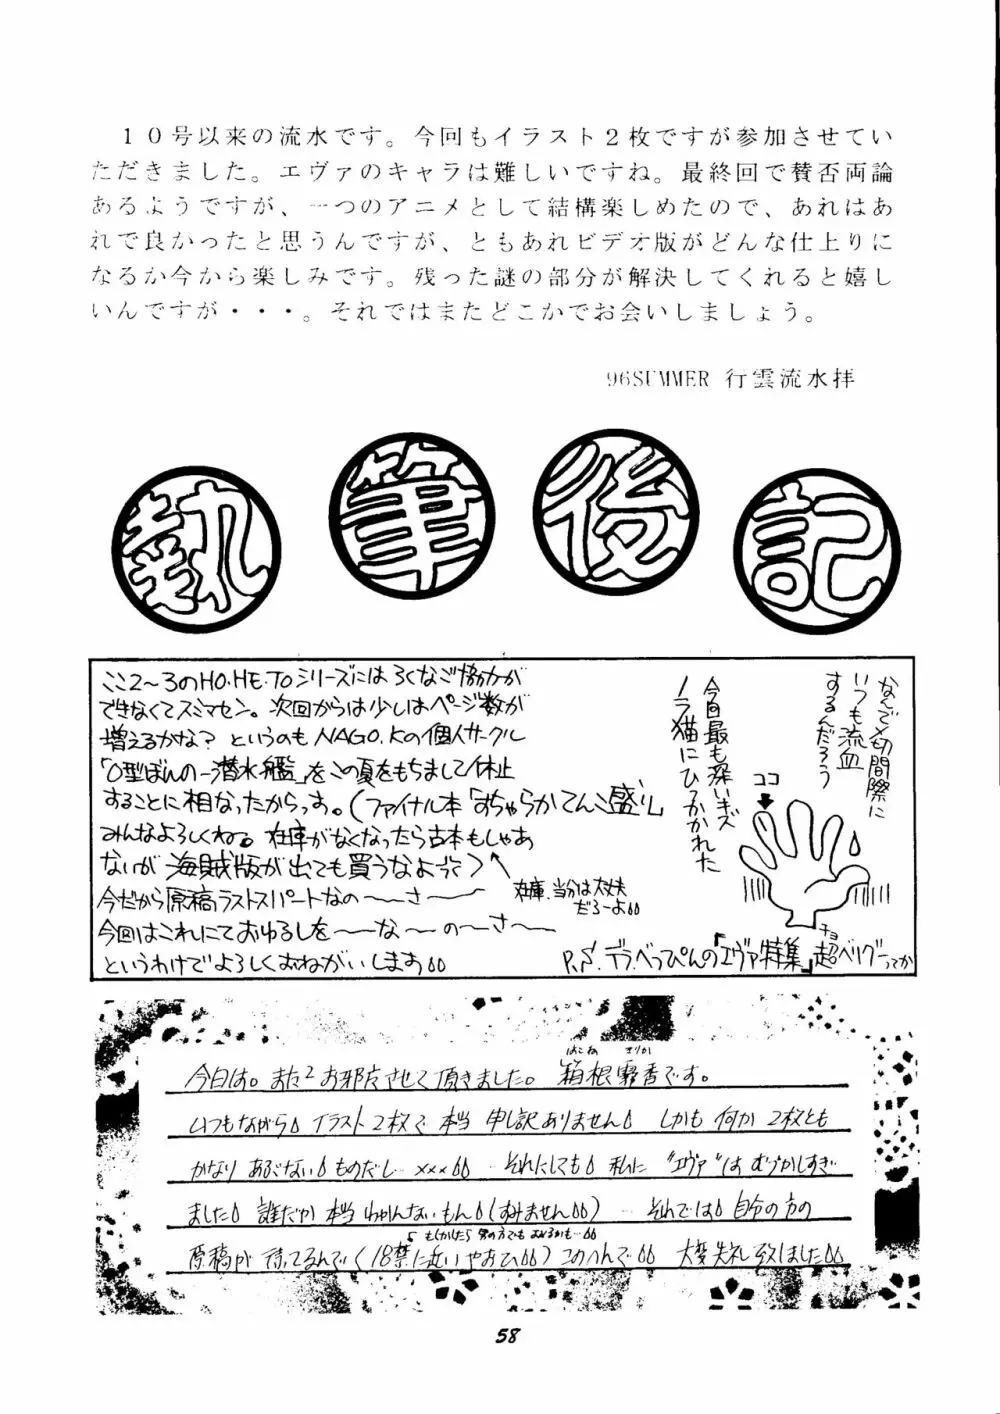 １０号以来の流水です。今回もイラスト２枚ですが参加させてい
ただきました。エヴァのキャラは難しいですね。最終回で賛否両論
あるようですが、一つのアニメとして結構楽しめたので、あれはあ
れで良かったと思うんですが、ともあれビデオ版がどんな仕上りに
なるか今から楽しみです。残った謎の部分が解決してくれると嬉し
いんですが・・・。それではまたどこかでお会いしましょう。
96SUMMER 行雲流水拝
執筆後記
ここ2〜3のHO.HE.TOシリーズにはろくなご協力が
できなくてスミマセン。次回からは少しはページ数が
増えるかな？ というのも NAGO.Kの個人サークル
「O型ぼんの一潜水艦」をこの夏をもちまして休止
することに相なったからっす。(ファイナル本「おちゃらかてんこ盛り」
みんなよろしくね。在庫がなくなったら古本もしゃあ
ないが 海賊版が出ても買うなよ)
在庫、当分は大丈夫
だろーよ
今だから原稿ラストスパートなの〜〜さ〜〜
今回はこれにておゆるしを〜〜な〜の〜さ〜
というわけでよろしくおねがいします
なんで〆切間際に
いつも流血
するんだろう
ココ
今回最も深いキズ
ノラ猫にひっかかれた
P.S.デラべっぴんの「エヴァ特集」超ベリグーってか
チョ
はこね きりか
今日は。また2お邪魔させて頂きました。 箱根霧香です。
いつもながら イラスト2枚で 本当 申し訳ありません しかも 何か 2枚とも
かなり あぶない ものだし… xxx … それにしても 私に "エヴァ"は むづかしすぎ
ました 誰だか 本当 わかんないもん (すみません) … それでは 自分の方の
もしかしたら
原稿が 待ってるんで (18禁に近いやおい) このへんで 大変 失礼致しました
58